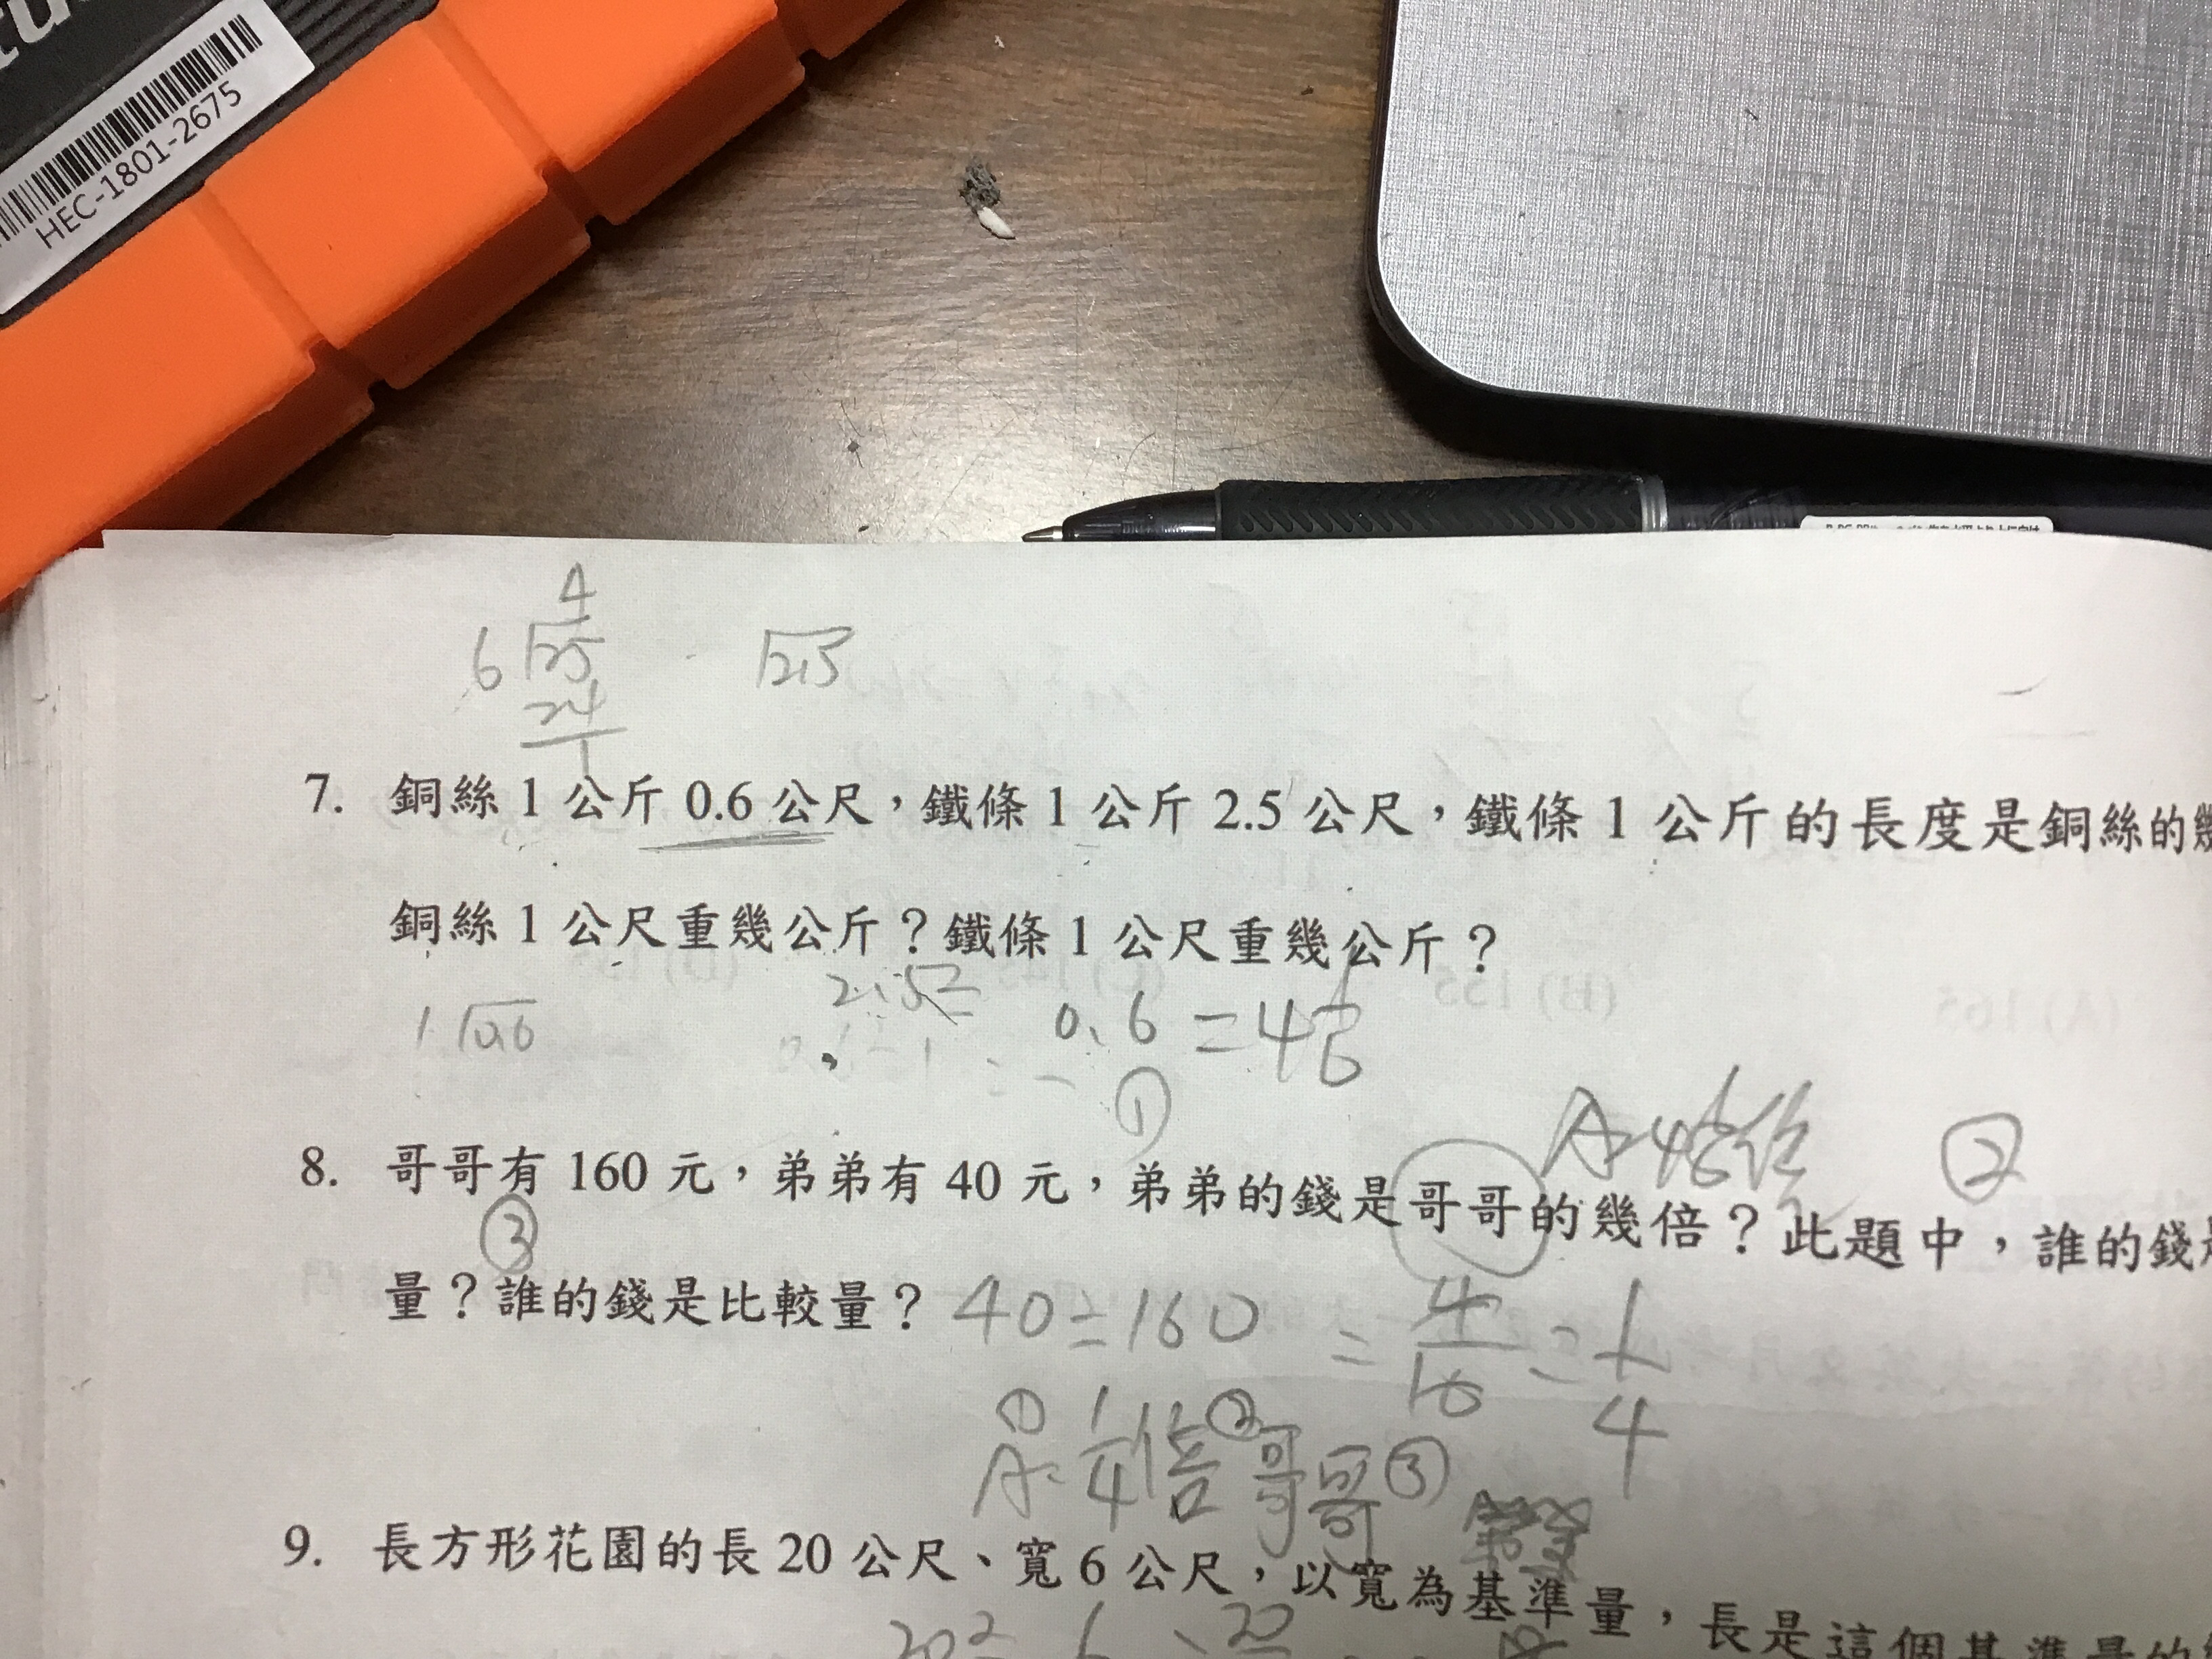 HEC-1801-2675
4
6 25 2.5
24
1
7. 銅絲 1 公斤 0.6 公尺，鐵條 1 公斤 2.5 公尺，鐵條 1 公斤的長度是銅絲的幾
銅絲 1 公尺重幾公斤？鐵條 1 公尺重幾公斤？
1 0.6 2.5÷ 0.6 = 4 1/6
①
A: 4 1/6 倍 ②
8. 哥哥有 160 元，弟弟有 40 元，弟弟的錢是哥哥的幾倍？此題中，誰的錢是
③
量？誰的錢是比較量？ 40÷160 = 4/16 = 1/4
① A: 1/4 倍 ② 哥哥 ③
9. 長方形花園的長 20 公尺、寬 6 公尺，以寬為基準量，長是這個基準量的